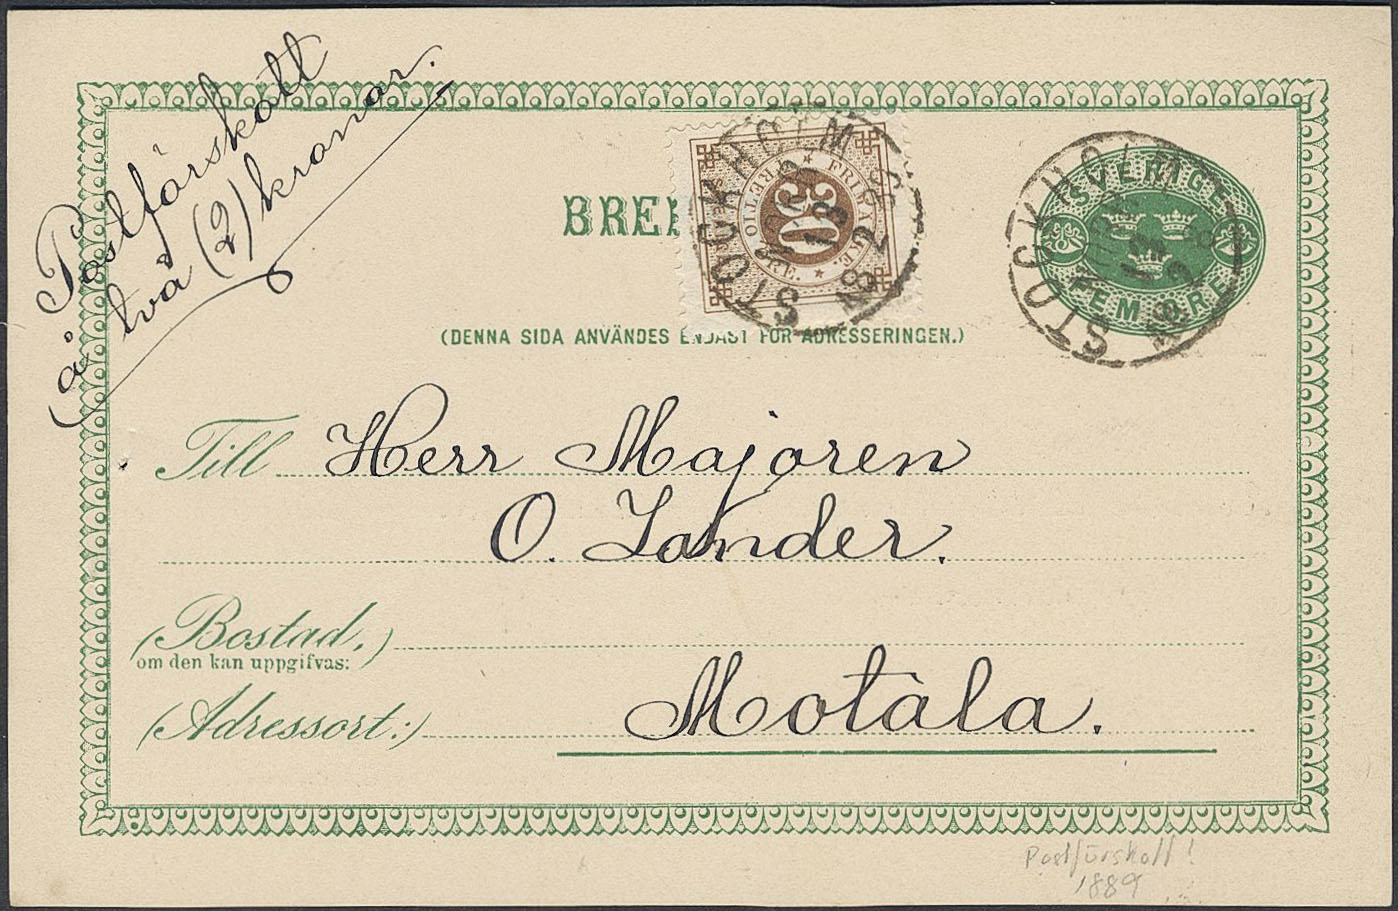 Postförskott
å två (2) kronor.
BRE
STOCKHOLM
30
FRIMÄRKE
TRETTIO
STOCKHOLM
SVERIGE
FEM ÖRE
(DENNA SIDA ANVÄNDES ENDAST FÖR ADRESSERINGEN.)
Till Herr Majoren
O. Lander.
(Bostad,)
om den kan uppgifvas:
(Adressort:) Motala.
Postförskott!
1889